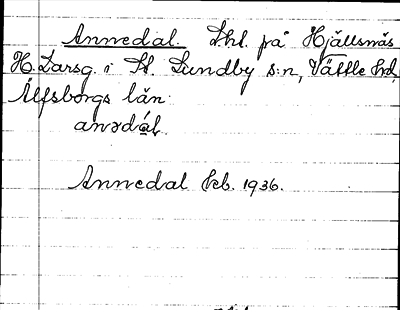 Annedal. L.hl. på Hjällsnäs
H. Larsg. i St. Lundby s:n, Vättle hd,
Älfsborgs län.
anədál.
Annedal kb. 1936.